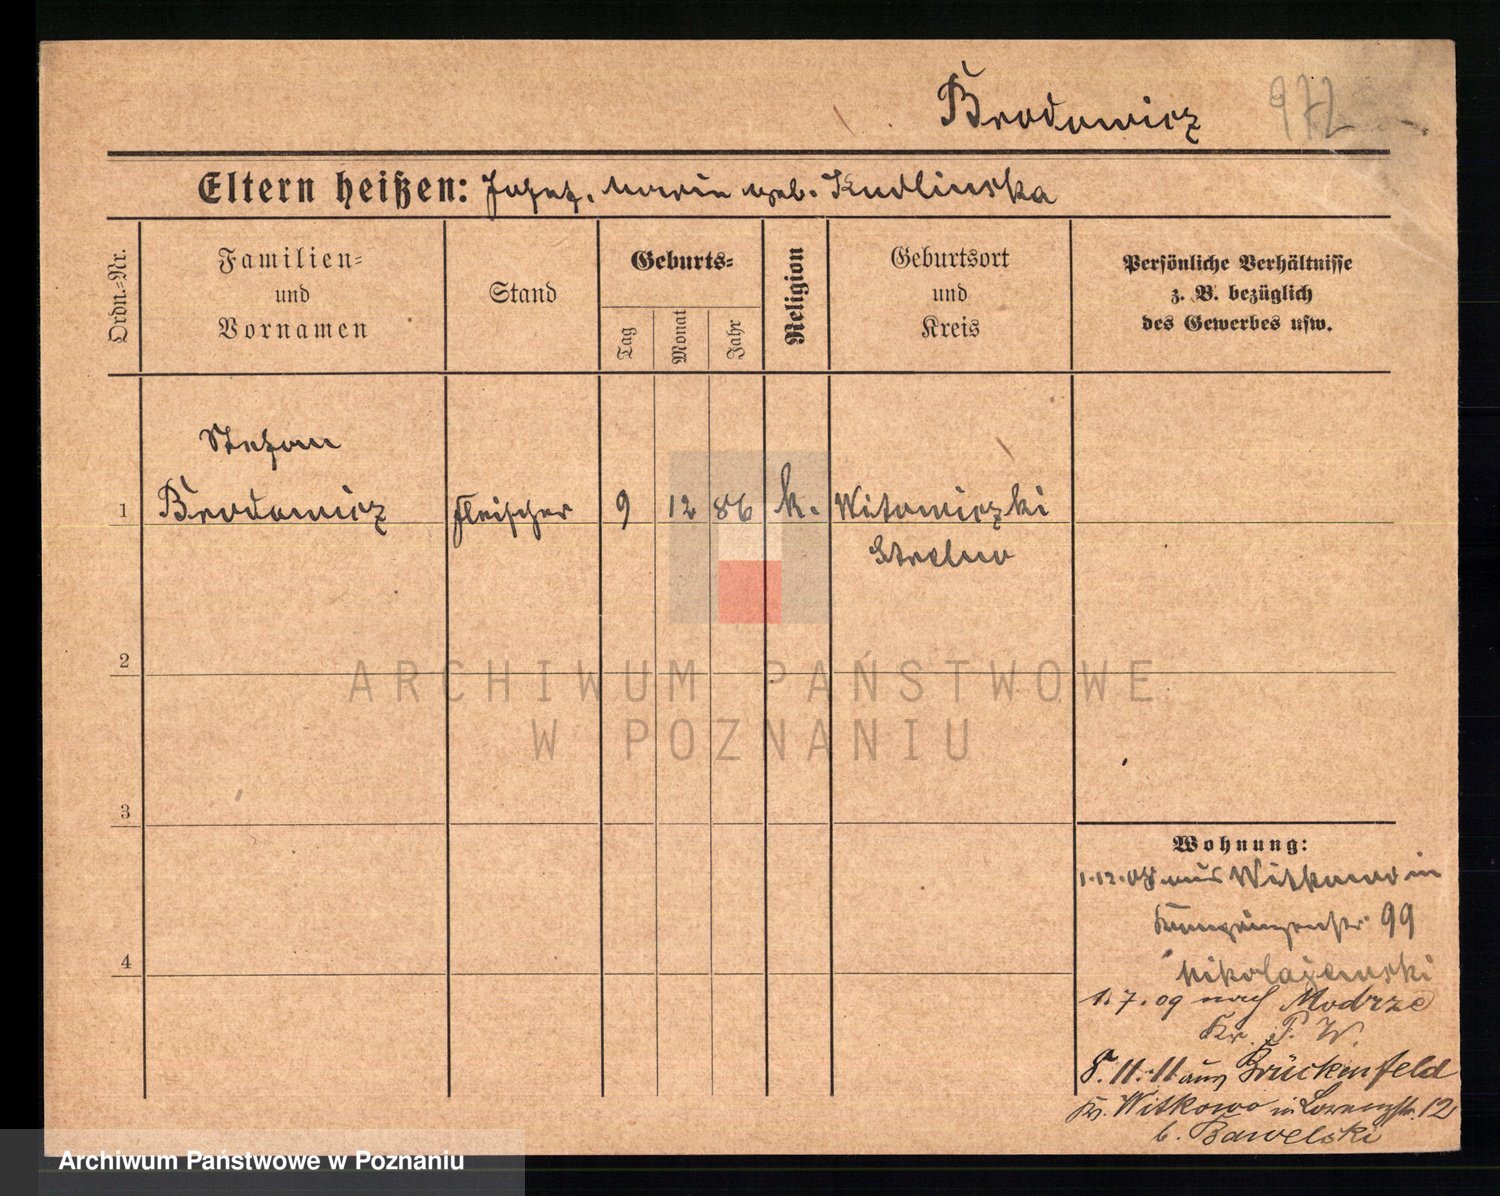 Brodowicz 972
Eltern heißen: Josef, Maria geb. Kudlinska
Ordn.-Nr.
Familien- und Vornamen
Stand
Geburts-
Tag
Monat
Jahr
Religion
Geburtsort und Kreis
Persönliche Verhältnisse
z. B. bezüglich
des Gewerbes usw.
Stefan
1 Brodowicz Fleischer 9 12 86 k. Witowiczki
Strelno
2
ARCHIWUM PAŃSTWOWE
W POZNANIU
3
Wohnung:
1.12.08 aus Witkowo in
99
Nikolajewski
4
1.7.09 nach Modrze
Kr. P. W.
8.11.11 aus Brückenfeld
Kr. Witkowo in Lorenzstr. 12
b. Bawelski
Archiwum Państwowe w Poznaniu